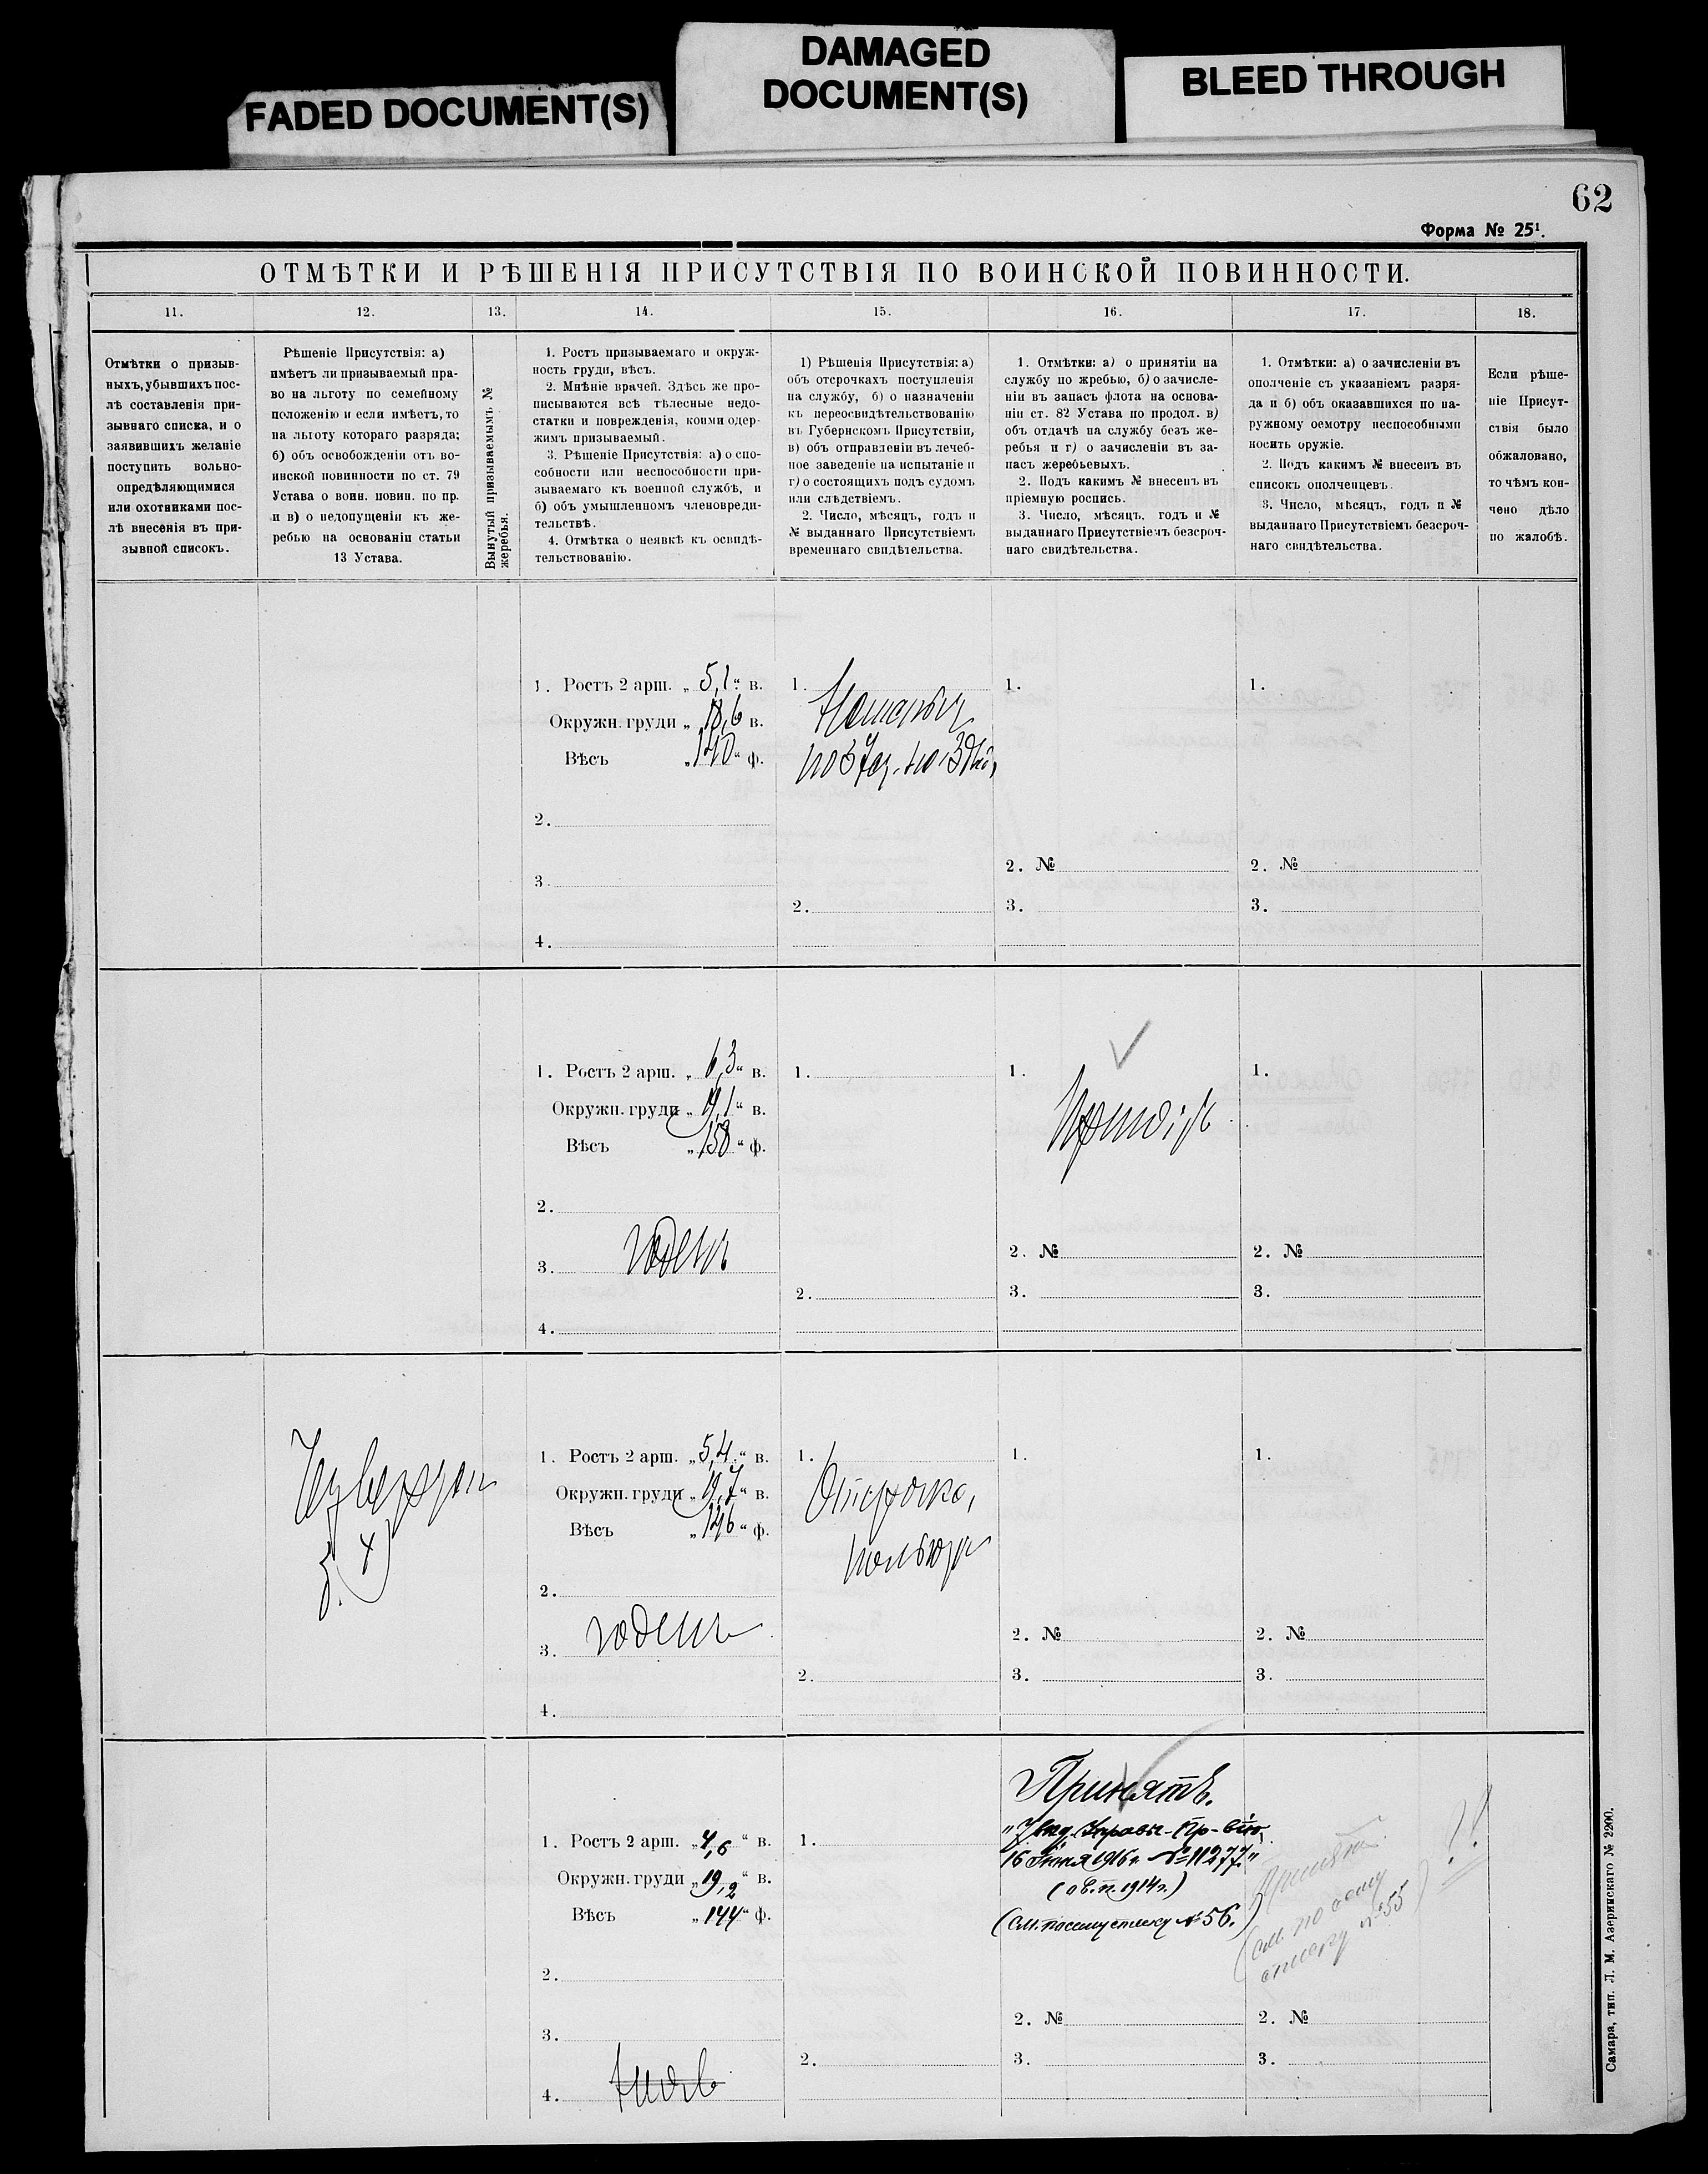 FADED DOCUMENT(S)
DAMAGED
DOCUMENT(S)
BLEED THROUGH
62
Форма № 25¹.
ОТМѢТКИ И РѢШЕНІЯ ПРИСУТСТВІЯ ПО ВОИНСКОЙ ПОВИННОСТИ.
11.
12.
13.
14.
15.
16.
17.
18.
Отмѣтки о призыв-
ныхъ, убывшихъ пос-
лѣ составленія при-
зывнаго списка, и о
заявившихъ желаніе
поступить вольно-
опредѣляющимися
или охотниками пос-
лѣ внесенія въ при-
зывной списокъ.
Рѣшеніе Присутствія: а)
имѣетъ ли призываемый пра-
во на льготу по семейному
положенію и если имѣетъ, то
на льготу котораго разряда;
б) объ освобожденіи отъ во-
инской повинности по ст. 79
Устава о воин. повин. по пр.
и в) о недопущеніи къ же-
ребью на основаніи статьи
13 Устава.
Вынутый призываемымъ №
жеребья.
1. Ростъ призываемаго и окруж-
ность груди, вѣсъ.
2. Мнѣніе врачей. Здѣсь же про-
писываются всѣ тѣлесные недо-
статки и поврежденія, коими одер-
жимъ призываемый.
3. Рѣшеніе Присутствія: а) о спо-
собности или неспособности при-
зываемаго къ военной службѣ, и
б) объ умышленномъ членовреди-
тельствѣ.
4. Отмѣтка о неявкѣ къ освидѣ-
тельствованію.
1) Рѣшенія Присутствія: а)
объ отсрочкахъ поступленія
на службу, б) о назначеніи
къ переосвидѣтельствованію
въ Губернскомъ Присутствіи,
в) объ отправленіи въ лечеб-
ное заведеніе на испытаніе и
г) о состоящихъ подъ судомъ
или слѣдствіемъ.
2. Число, мѣсяцъ, годъ и
№ выданнаго Присутствіемъ
временнаго свидѣтельства.
1. Отмѣтки: а) о принятіи на
службу по жребью, б) о зачисле-
ніи въ запасъ флота на основа-
ніи ст. 82 Устава по продол. в)
объ отдачѣ на службу безъ же-
ребья и г) о зачисленіи въ за-
пасъ жеребьевыхъ.
2. Подъ какимъ № внесенъ въ
пріемную роспись.
3. Число, мѣсяцъ, годъ и №
выданнаго Присутствіемъ безсроч-
наго свидѣтельства.
1. Отмѣтки: а) о зачисленіи въ
ополченіе съ указаніемъ разря-
да и б) объ оказавшихся по на-
ружному осмотру неспособными
носить оружіе.
2. Подъ какимъ № внесенъ въ
списокъ ополченцевъ.
3. Число, мѣсяцъ, годъ и №
выданнаго Присутствіемъ безсроч-
наго свидѣтельства.
Если рѣше-
ніе Присут-
ствія было
обжаловано,
то чѣмъ кон-
чено дѣло
по жалобѣ.
1. Ростъ 2 арш. „ 5,1 “ в.
Окружн. груди „ 18,6 в.
Вѣсъ „ 140 “ ф.
2.
3.
4.
1.
2.
1.
2. №
3.
1.
2. №
3.
1. Ростъ 2 арш. „ 6,3 “ в.
Окружн. груди „ 19,1 “ в.
Вѣсъ „ 158 “ ф.
2.
3. годенъ
4.
1.
2.
1.
Принятъ
2. №
3.
1.
2. №
3.
1. Ростъ 2 арш. „ 5,4 “ в.
Окружн. груди „ 19,7 “ в.
Вѣсъ „ 146 “ ф.
2.
3. годенъ
4.
1.
Отсрочка,
2.
1.
2. №
3.
1.
2. №
3.
1. Ростъ 2 арш. „ 4,6 “ в.
Окружн. груди „ 19,2 “ в.
Вѣсъ „ 144 “ ф.
2.
3.
4.
1.
2.
Принятъ.
16 Іюня 1916 г. № 11277.“
1914 г.)
(См. по сему списку № 56.)
2. №
3.
Принятъ
(см. по сему
списку № 55)
?!
2. №
3.
Самара, тип. Л. М. Азеринскаго № 2200.